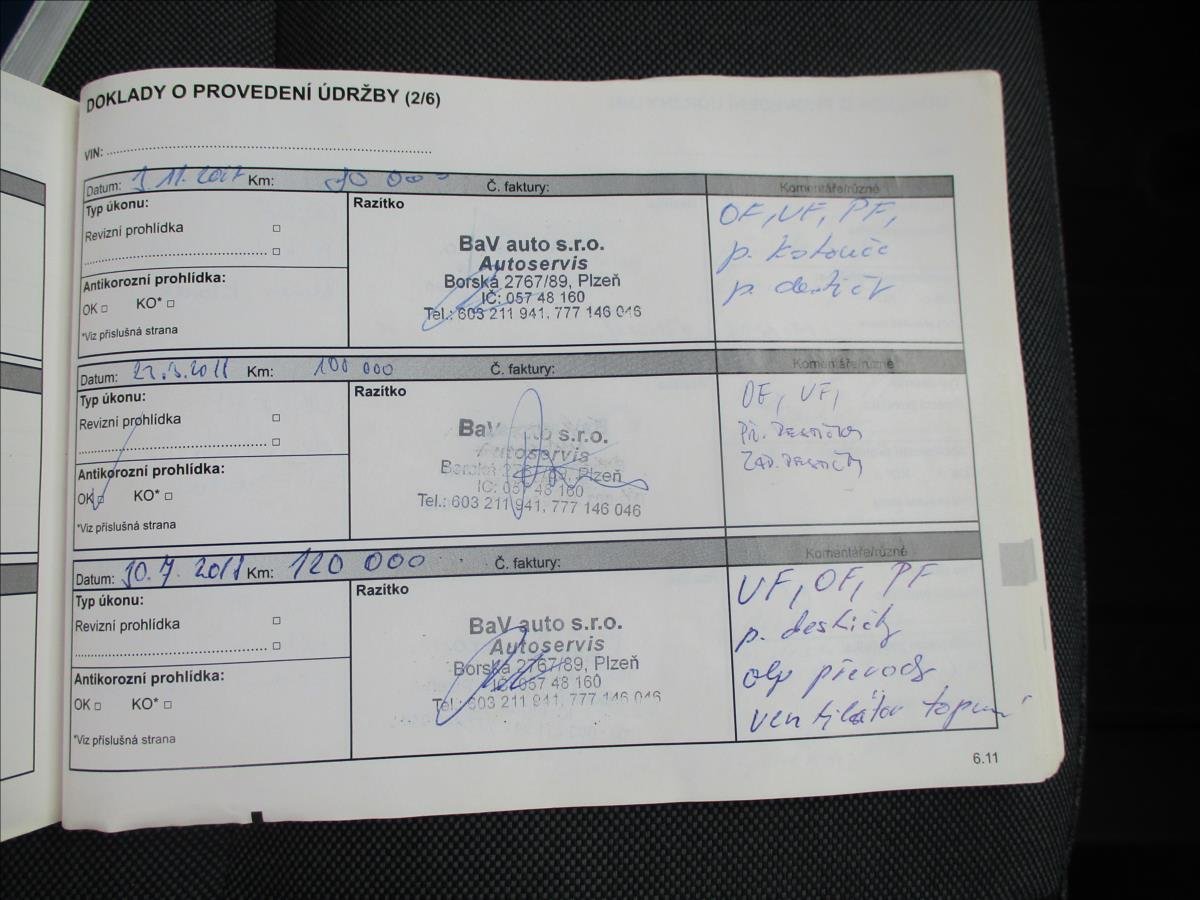 DOKLADY O PROVEDENÍ ÚDRŽBY (2/6)
VIN:
Datum: 3 11. 2017 Km: 90 000 Č. faktury: Komentáře/různé
Typ úkonu:
Revizní prohlídka
Antikorozní prohlídka:
OK KO*
*Viz příslušná strana
Razítko
BaV auto s.r.o.
Autoservis
Borská 2767/89, Plzeň
IČ: 057 48 160
Tel.: 603 211 941, 777 146 046
OF, UF, PF,
p. kotouče
p. destičky
Datum: 3.2018 Km: 100 000 Č. faktury: Komentáře/různé
Typ úkonu:
Revizní prohlídka
Antikorozní prohlídka:
OK KO*
*Viz příslušná strana
Razítko
BaV auto s.r.o.
Autoservis
Borská 2767/89, Plzeň
IČ: 057 48 160
Tel.: 603 211 941, 777 146 046
OF, VF,
PŘ. DESTIČKY
ZAD. DESTIČKY
Datum: 30. 7. 2018 Km: 120 000 Č. faktury: Komentáře/různé
Typ úkonu:
Revizní prohlídka
Antikorozní prohlídka:
OK KO*
*Viz příslušná strana
Razítko
BaV auto s.r.o.
Autoservis
Borská 2767/89, Plzeň
IČ: 057 48 160
Tel.: 603 211 941, 777 146 046
VF, OF, PF
p. destičky
olej převody
ventilátor topení
6.11